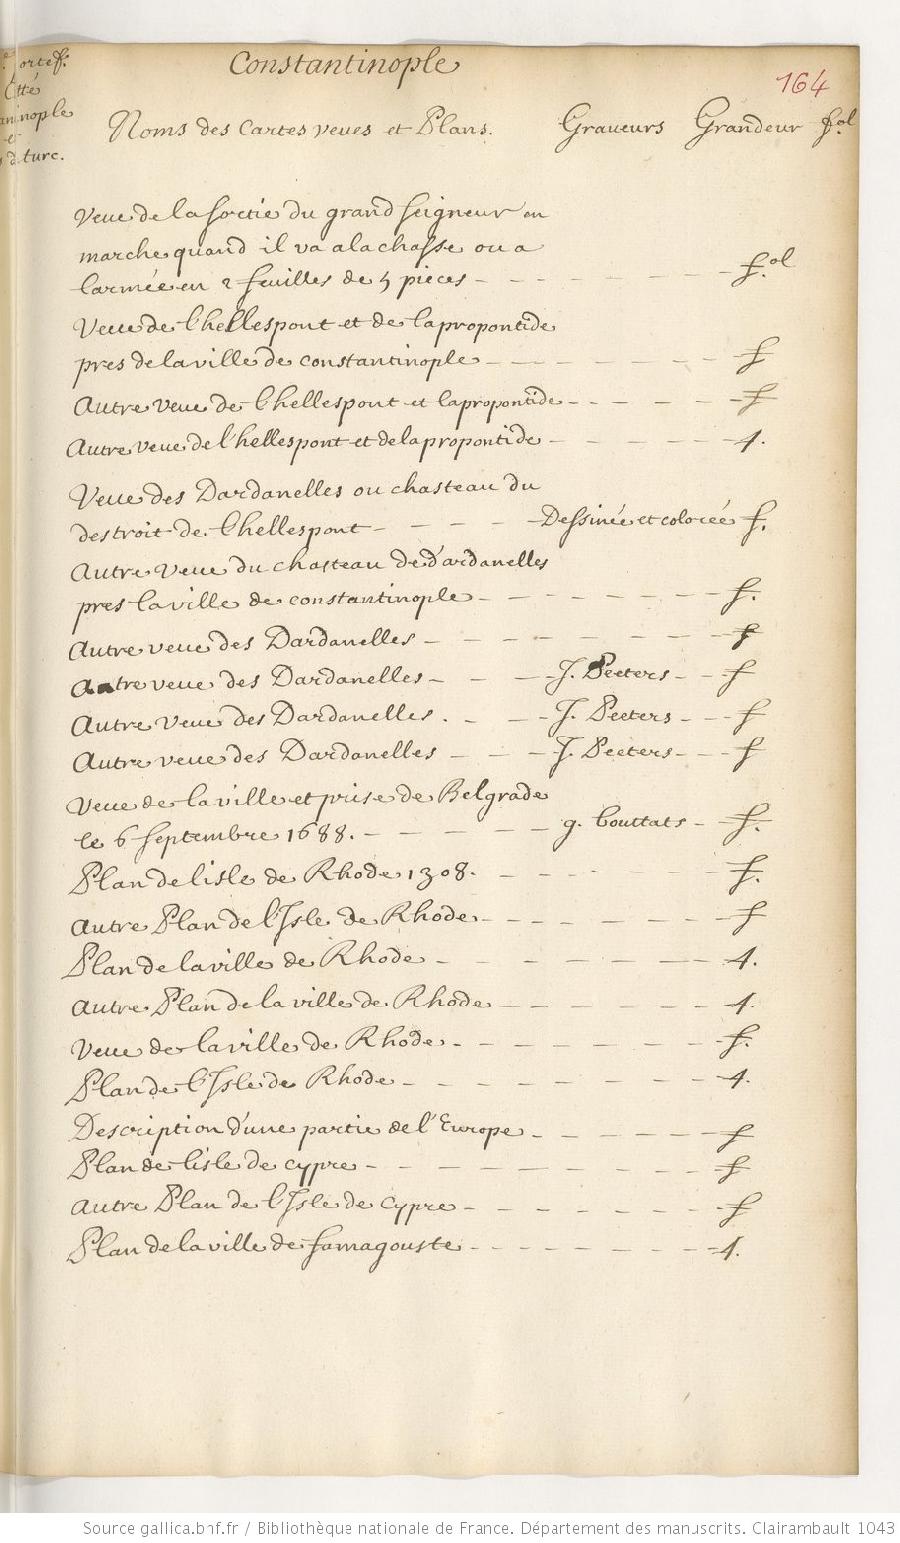 Constantinople
164
Noms des Cartes veues et Plans. Graueurs Grandeur fol
Veue de la sortie du grand seigneur en
marche quand il va a la chasse ou a
larmée en 2 feuilles de 5 pieces - f.ol
Veue de l'hellespont et de la propontide
pres de la ville de constantinople - f
Autre veue de l'hellespont et la propontide - f
Autre veue de l'hellespont et de la propontide - 4.
Veue des Dardanelles ou chasteau du
destroit de l'hellespont - Dessinée et colorée f.
Autre Veue du chasteau de d'ardanelles
pres la ville de constantinople - f.
Autre veue des Dardanelles - f
Autre veue des Dardanelles - J. Peeters - f
Autre Veue des Dardanelles - J. Peeters - f
Autre veue des Dardanelles - J. Peeters - f
Veue de la ville et prise de Belgrade
le 6 septembre 1688. - g. bouttats - f.
Plan de l'isle de Rhode 1308. - f.
Autre Plan de l'Isle de Rhode - f
Plan de la ville de Rhode - 4.
Autre Plan de la ville de Rhode - 4.
Veue de la ville de Rhode - f.
Plan de l'Isle de Rhode - 4.
Description d'une partie de l'Europe - f
Plan de l'isle de cypre - f
Autre Plan de l'Isle de cypre - f
Plan de la ville de famagouste - 4.
Source gallica.bnf.fr / Bibliothèque nationale de France. Département des manuscrits. Clairambault 1043